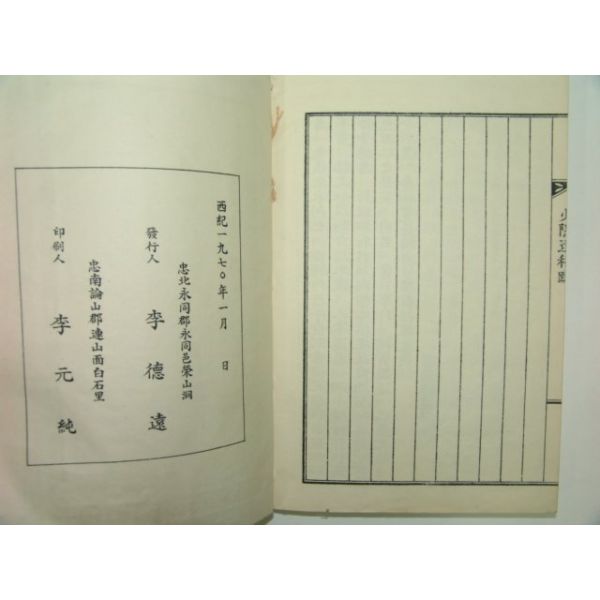 西紀一九七〇年一月 日
忠北永同郡永同邑榮山洞
發行人 李德遠
忠南論山郡連山面白石里
印刷人 李元純